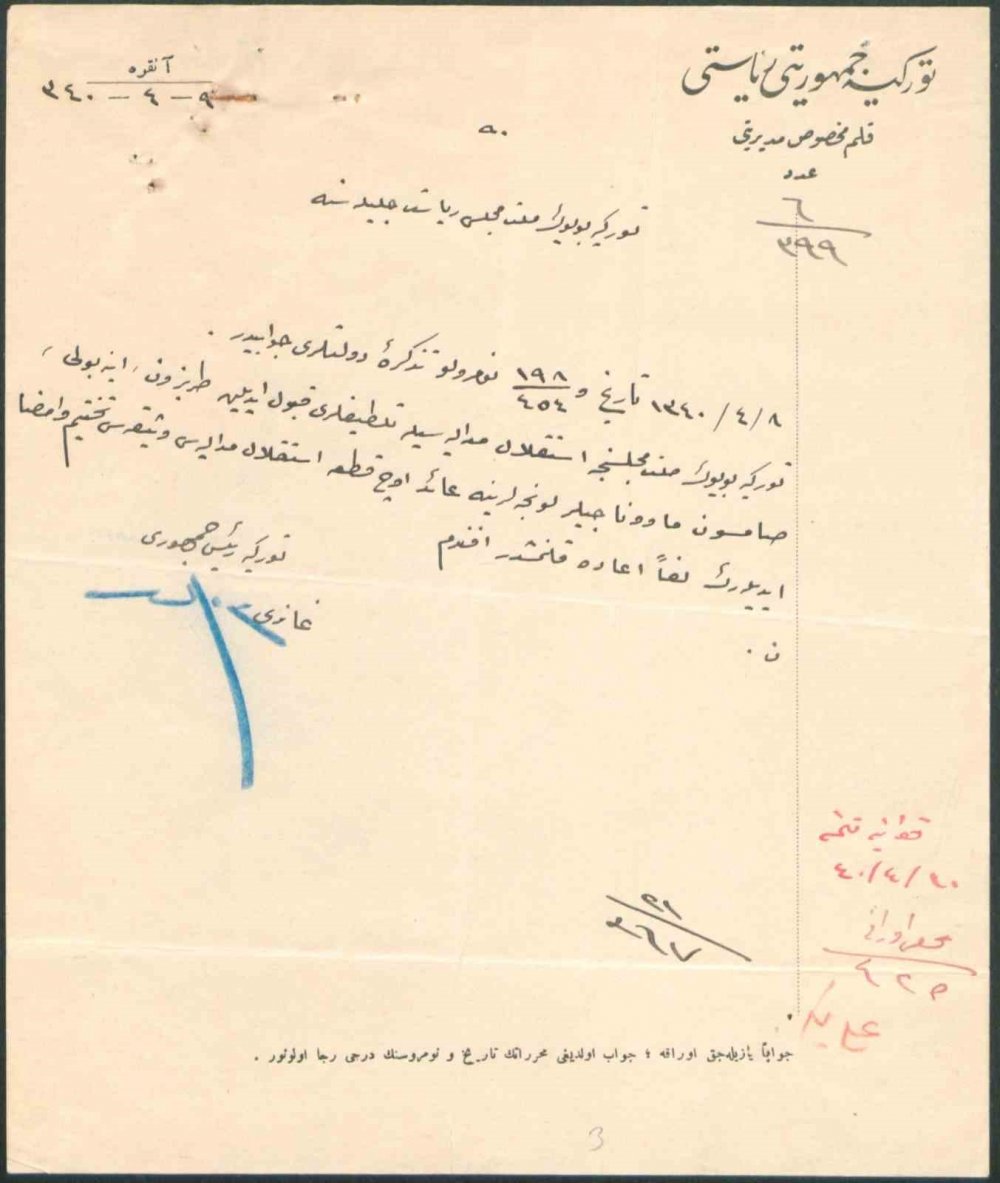 توركیه جمهوریتی ریاستی
قلم مخصوص مدیریتی
عدد
٦
٣٩٩
آنقره
٩ - ٤ - ٣٤٠
توركیه بویوك ملت مجلسی ریاست جلیله سنه
٨ / ٤ / ١٣٤٠ تاریخ و ١٩٨/٤٥٤ نومرولو تذكرۀ دولتلری جوابیدر .
توركیه بویوك ملت مجلسنجه استقلال مدالیه سیله تلطیفلری قبول ایدیلن طربزون ، اینه بولی ،
صامسون ماوونا جیلر لونجه لرینه عائد اوچ قطعه استقلال مدالیه سی وثیقه سی تختیم وامضا
ایدیلرك لفاً اعاده قلنمشدر افندم
ن .
توركیه رئیس جمهوری
غازی
٤٠/٤/١٠
اوراق
علی بك
جواباً یازیله جق اوراقه ؛ جواب اولدیغی محرراتك تاریخ و نومروسنك درجی رجا اولونور .
3